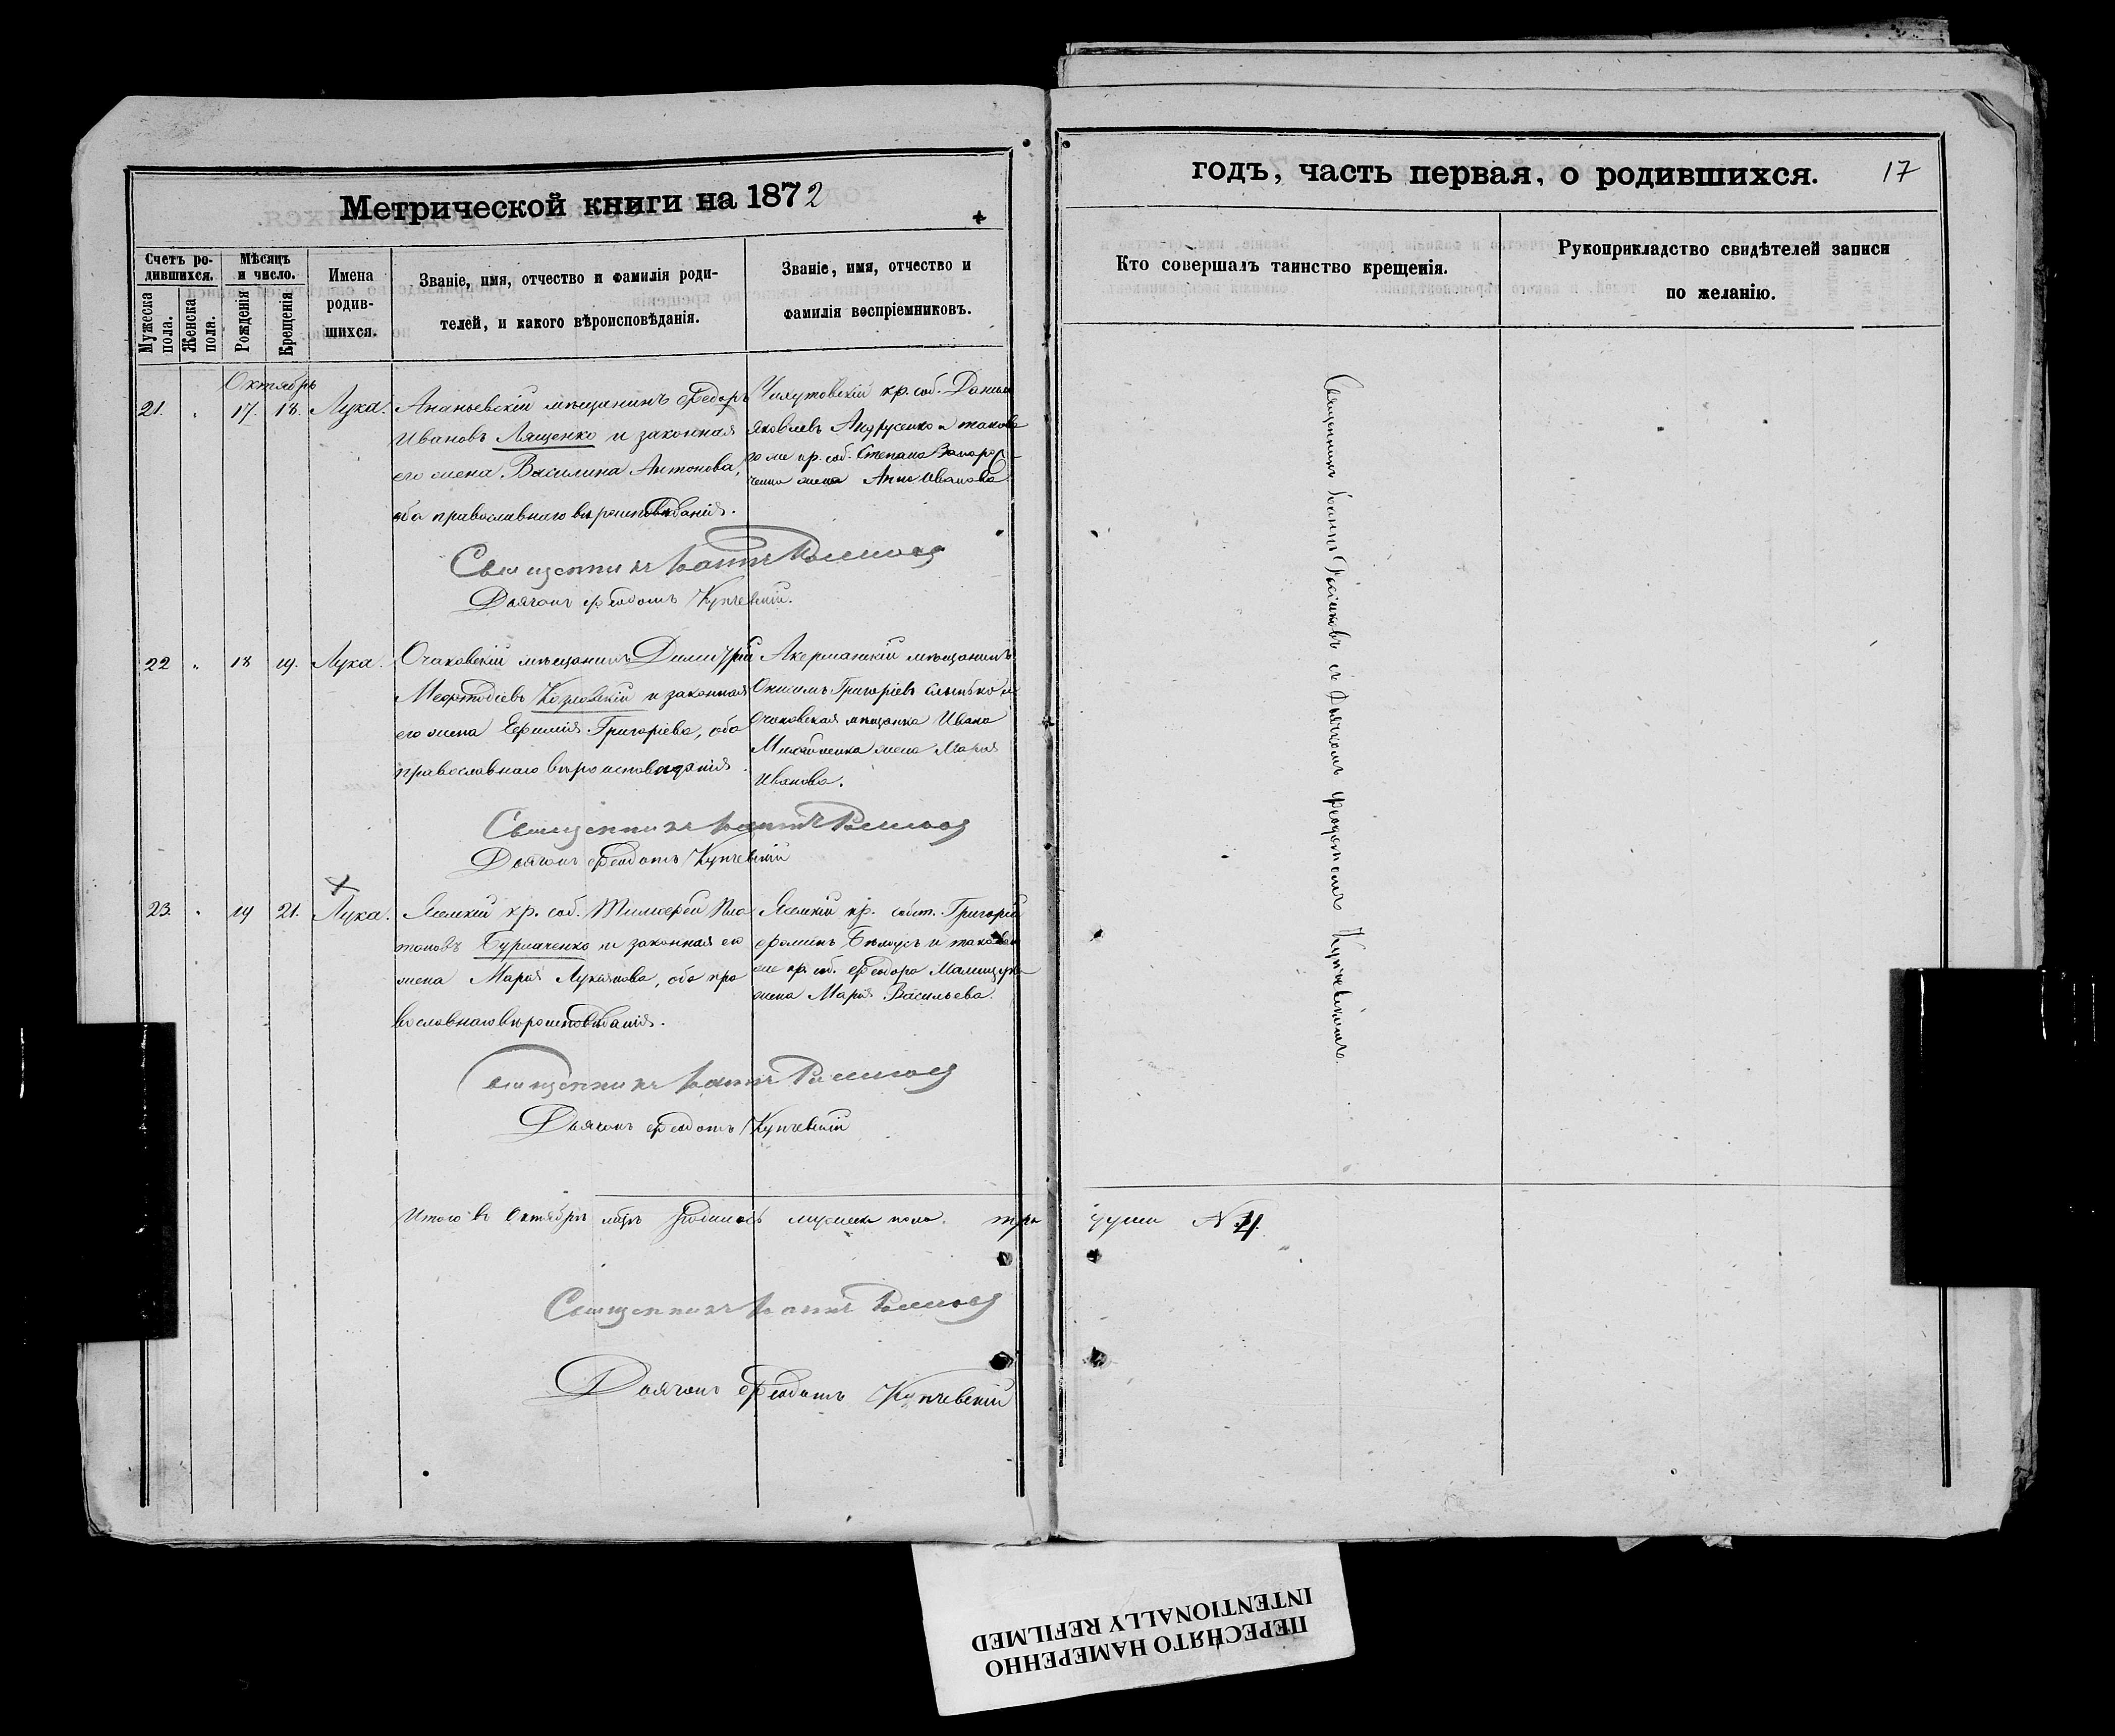 Метрической книги на 1872
Счетъ ро-
дившихся.
Мужеска
пола.
Женска
пола.
Мѣсяцъ
и число.
Рожденія
Крещенія
Имена
родив-
шихся.
Званіе, имя, отчество и фамилія роди-
телей, и какого вѣроисповѣданія.
Званіе, имя, отчество и
фамилія воспріемниковъ.
Октябрь
21. " 17. 18. Лука.
Ананьевскій мѣщанинъ Федоръ
Ивановъ Лященко и законная
его жена Василина Антонова,
оба православнаго вѣроисповѣданія.
кр. соб. Данило
Яковлевъ Андрусенко и таково
го же кр. соб. Степана
жена Анна Иванова
Священникъ Іоаннъ
Дьячокъ Феодотъ Купчевскій.
22 " 18 19. Лука.
Очаковскій мѣщанинъ Димитрій
Мефодіевъ Козловскій и законная
его жена Евфимія Григоріева, оба
православнаго вѣроисповѣданія.
Акерманскій мѣщанинъ
Онисимъ Григоріевъ и
Очаковская мѣщанка Ивана
жена Марія
Иванова.
Священникъ Іоаннъ
Дьячокъ Феодотъ Купчевскій
23. " 19 21. Лука.
Ясскій кр. соб. Тимофей Пла
тоновъ Бурлаченко и законная его
жена Марія Лукьянова, оба пра
вославнаго вѣроисповѣданія.
Ясскій кр. собст. Григорій
Фоминъ Бѣлоусъ и таково
же кр. соб. Феодора
жена Марія Васильева.
Священникъ Іоаннъ
Дьячокъ Феодотъ Купчевскій
Итого въ Октябрѣ мцѣ родилось мужеска пола. три
Священникъ Іоаннъ
Дьячокъ Феодотъ Купчевскій
годъ, часть первая, о родившихся. 17
Кто совершалъ таинство крещенія.
Рукоприкладство свидѣтелей записи
по желанію.
Священникъ Іоаннъ съ дьячкомъ Феодотомъ Купчевскимъ.
души №
ПЕРЕСНЯТО НАМЕРЕННО
INTENTIONALLY REFILMED